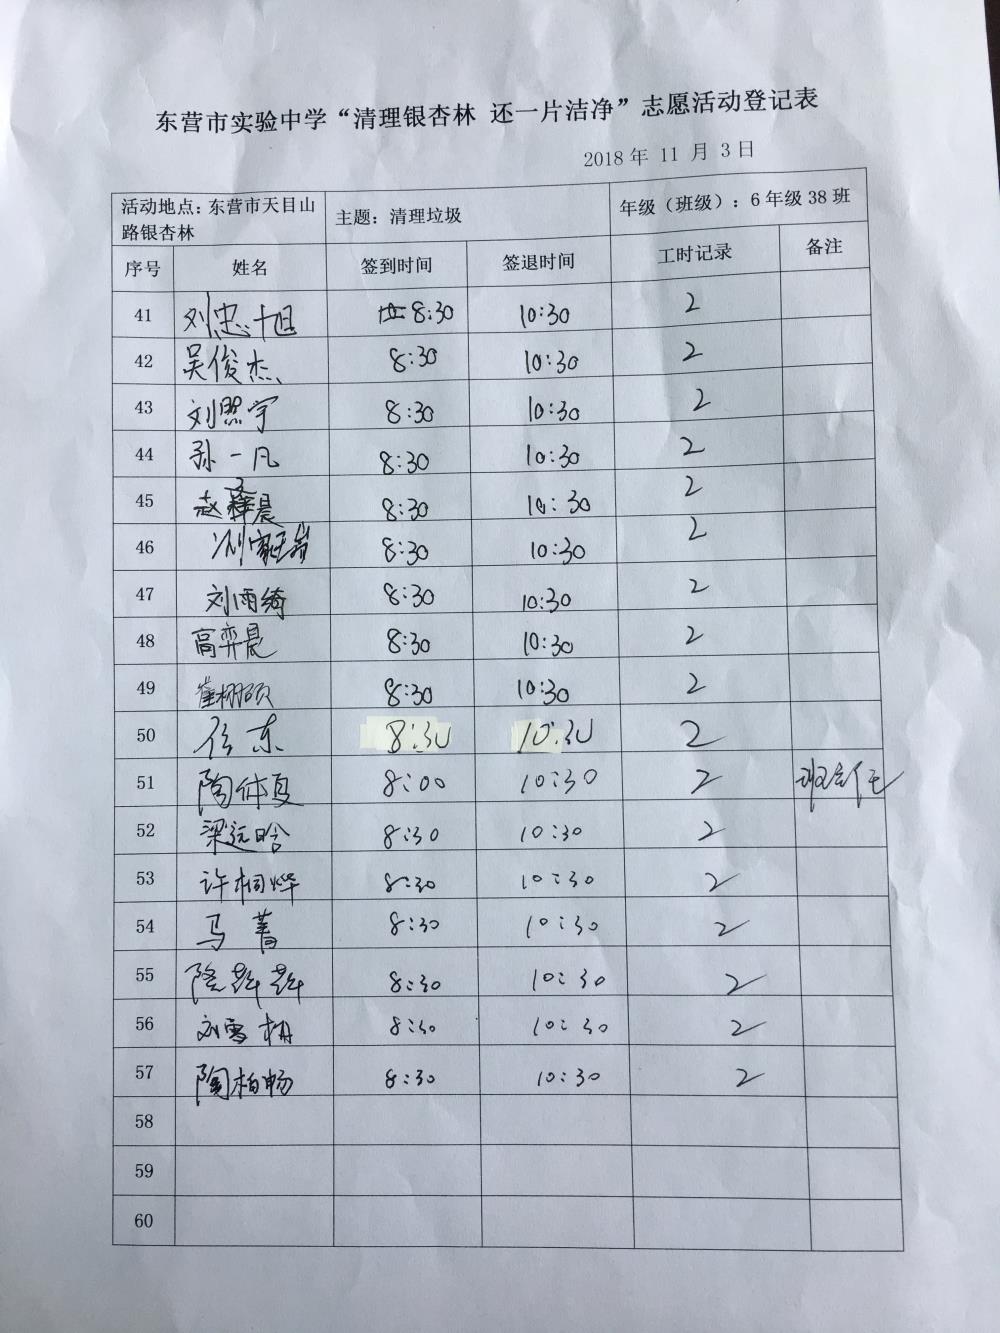 东营市实验中学“清理银杏林 还一片洁净”志愿活动登记表
2018 年 11 月 3 日
活动地点：东营市天目山路银杏林 主题：清理垃圾 年级（班级）：6 年级 38 班
序号 姓名 签到时间 签退时间 工时记录 备注
41 刘忠旭 8:30 10:30 2
42 吴俊杰 8:30 10:30 2
43 刘照宇 8:30 10:30 2
44 孙一凡 8:30 10:30 2
45 赵泽晨 8:30 10:30 2
46 8:30 10:30 2
47 刘雨绮 8:30 10:30 2
48 高弈晨 8:30 10:30 2
49 崔栩硕 8:30 10:30 2
50 任东 8:30 10:30 2
51 陶仲夏 8:00 10:30 2 班主任
52 梁远晗 8:30 10:30 2
53 许桐烨 8:30 10:30 2
54 马菁 8:30 10:30 2
55 8:30 10:30 2
56 刘雪栩 8:30 10:30 2
57 陶柏畅 8:30 10:30 2
58
59
60